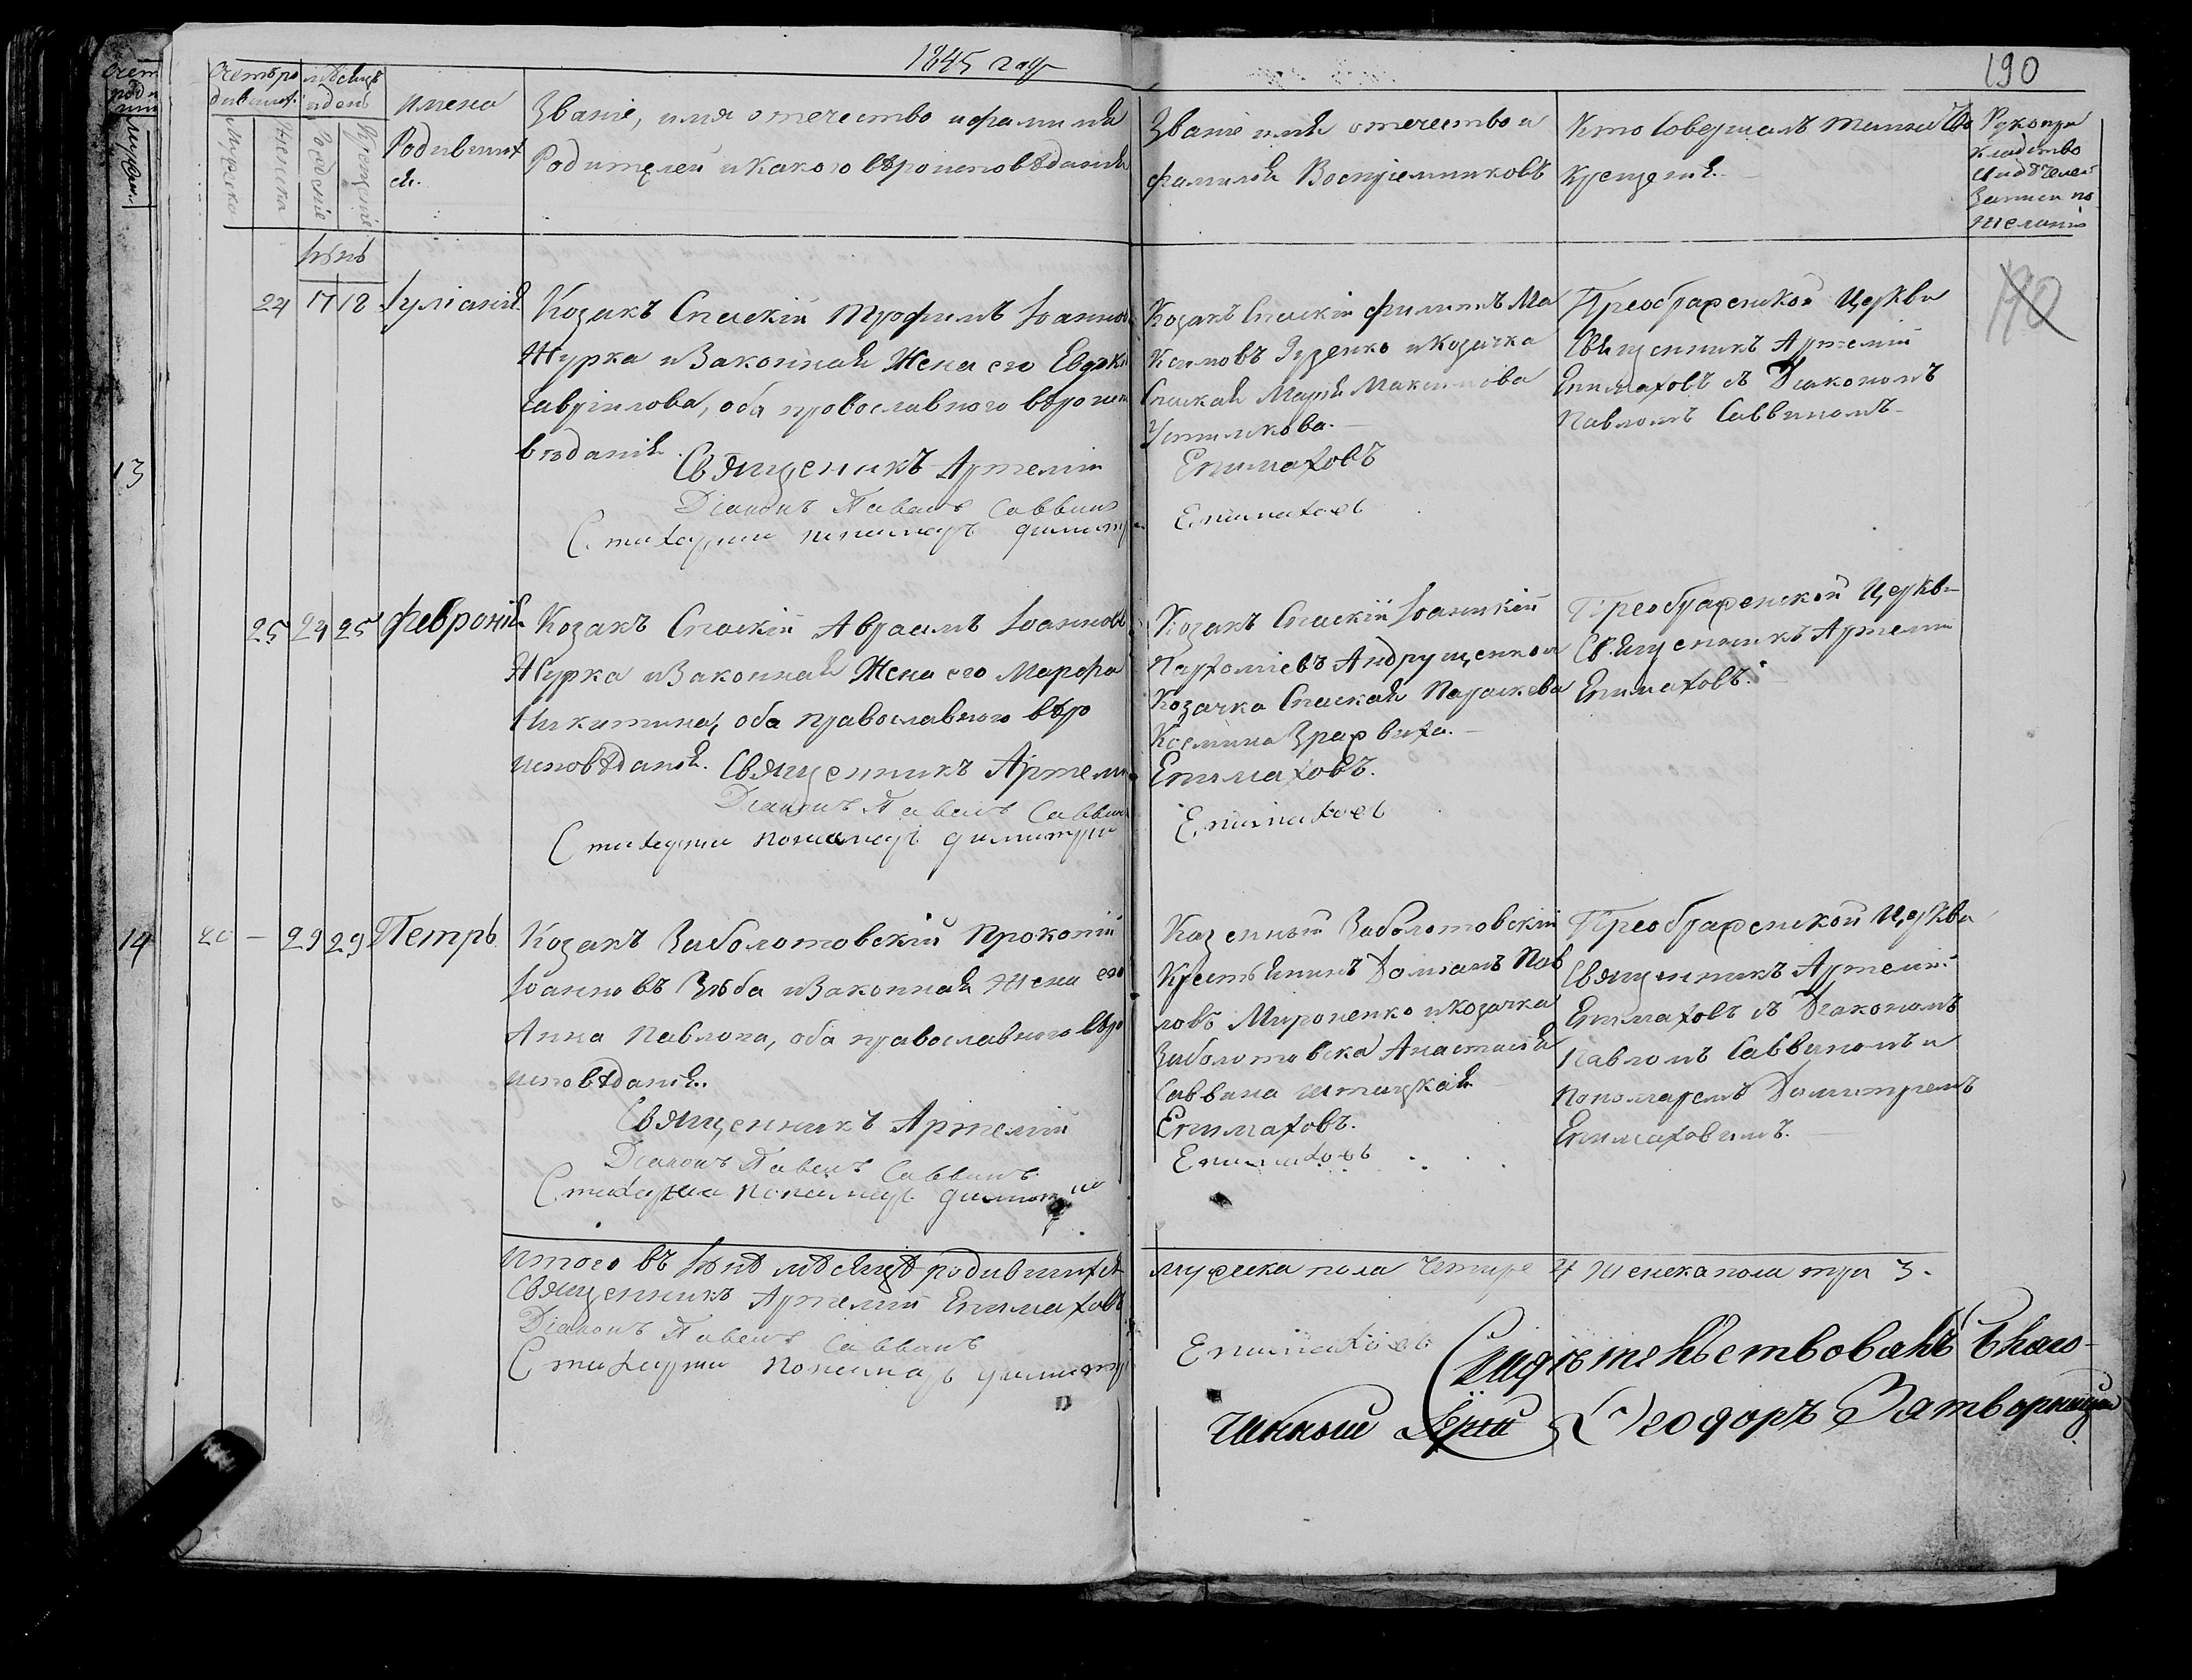 1845 года
190
Счетъ ро
дившихся
мѣсяцъ
и день
Мужска
Женска
Рожденіе
Крещеніе
Имена
Родивших
ся.
Званіе, имя отечество и фамилія
Родителей и какого вѣроисповѣданія
Званіе имя отечество и
фамилія Воспріемниковъ
Кто Совершалъ таинство
Крещенія.
Рукопри
кладство
свидѣтелей
Записи по
желанію
Іюнь
24 17 18 Іуліанія
Козакъ Спаскій Трофимъ Іоаннов
Журка и Законная Жена его Евдокі
Гавріилова, оба православного вѣроиспо
вѣданія.
Священикъ Артемій
Діаконъ Павелъ Саввин
Стихарни пономарь Димитр
Козакъ Спаскій Филипъ Ма
ксимовъ и Козачка
Спаская Марія Максимова
Епимаховъ
Епимахов
Преображенской Церкви
Священникъ Артемій
Епимаховъ съ Діакономъ
Павломъ Саввиномъ
190
13
25 24 25 Февронія
Козакъ Спаскій Авраамъ Іоаннов
Журка и Законная Жена его Марфа
Никитина, оба православного вѣро
исповѣданія. Священникъ Артеми
Діаконъ Павелъ Саввин
Стихарни пономарь Димитри
Козакъ Спаскій Іоаникій
Пархоміевъ Андрущенко и
Козачка Спаская Параскева
Косьмина
Епимаховъ.
Епимахов
Преображенской Церкви
Священникъ Артемій
Епимаховъ.
14
20 — 29 29 Петръ
Козакъ Заболотовскій Прокопій
Іоанновъ Зюба и Законная Жена его
Анна Павлова, оба православного вѣро
исповѣданія.
Священникъ Артемій
Діаконъ Павелъ Саввинъ
Стихарни пономарь Димитри
Казенный Заболотовскій
Крестьянинъ Даміанъ Пав
ловъ Мироненко и Козачка
Заболотовска Анастасія
Саввина
Епимаховъ.
Епимаховъ
Преображенской Церкви
Священникъ Артемій
Епимаховъ съ Діакономъ
Павломъ Саввиномъ и
Пономаремъ Димитріемъ
Епимаховимъ.
Итого въ Іюнѣ мѣсяцѣ родившихся
мужеска пола четире 4 Женска пола три 3.
Священникъ Артемій Епимаховъ
Діаконъ Павелъ Саввинъ
Стихарни пономарь Димитр
Епимаховъ
Свидѣтельствовалъ Благо-
чинный Іерей Феодоръ